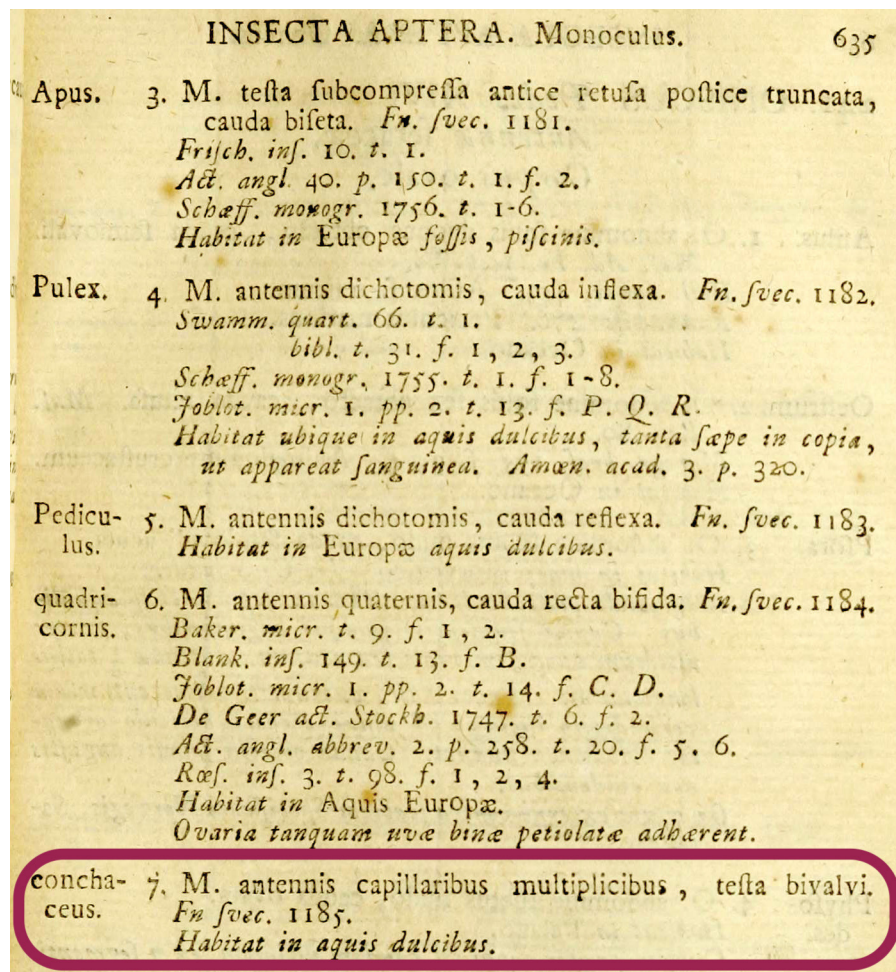 INSECTA APTERA. Monoculus. 635
Apus. 3. M. teſta ſubcompreſſa antice retuſa poſtice truncata,
cauda biſeta. Fn. ſvec. 1181.
Friſch. inſ. 10. t. 1.
Act. angl. 40. p. 150. t. 1. f. 2.
Schæff. monogr. 1756. t. 1-6.
Habitat in Europæ foſſis, piſcinis.
Pulex. 4. M. antennis dichotomis, cauda inflexa. Fn. ſvec. 1182.
Swamm. quart. 66. t. 1.
bibl. t. 31. f. 1, 2, 3.
Schæff. monogr. 1755. t. 1. f. 1-8.
Joblot. micr. 1. pp. 2. t. 13. f. P. Q. R.
Habitat ubique in aquis dulcibus, tanta ſæpe in copia,
ut appareat ſanguinea. Amœn. acad. 3. p. 320.
Pedicu- 5. M. antennis dichotomis, cauda reflexa. Fn. ſvec. 1183.
lus. Habitat in Europæ aquis dulcibus.
quadri- 6. M. antennis quaternis, cauda recta bifida. Fn. ſvec. 1184.
cornis. Baker. micr. t. 9. f. 1, 2.
Blank. inſ. 149. t. 13. f. B.
Joblot. micr. 1. pp. 2. t. 14. f. C. D.
De Geer act. Stockh. 1747. t. 6. f. 2.
Act. angl. abbrev. 2. p. 258. t. 20. f. 5. 6.
Rœſ. inſ. 3. t. 98. f. 1, 2, 4.
Habitat in Aquis Europæ.
Ovaria tanquam uvæ binæ petiolatæ adhærent.
concha- 7. M. antennis capillaribus multiplicibus, teſta bivalvi.
ceus. Fn ſvec. 1185.
Habitat in aquis dulcibus.